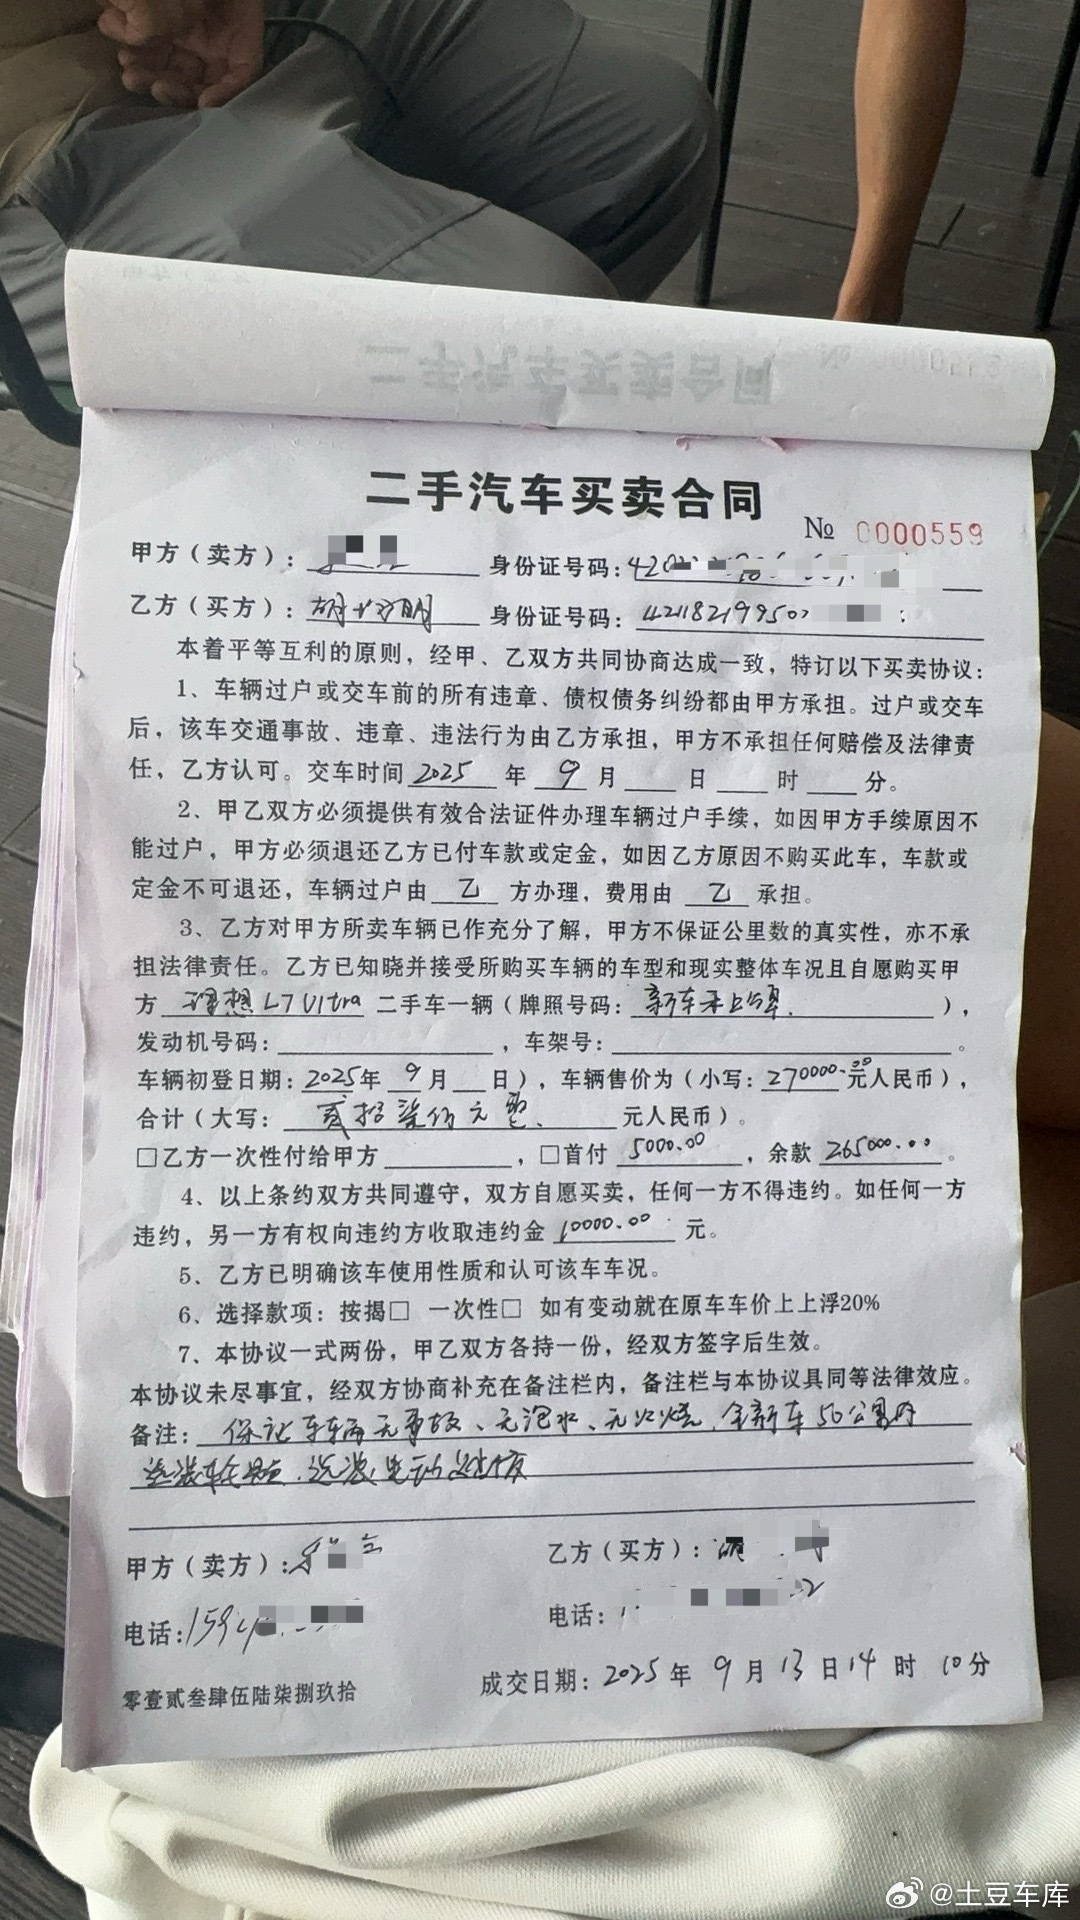 二手汽车买卖合同
№ 0000559
甲方（卖方）： 身份证号码：
乙方（买方）：胡 明 身份证号码：42118219950
本着平等互利的原则，经甲、乙双方共同协商达成一致，特订以下买卖协议：
1、车辆过户或交车前的所有违章、债权债务纠纷都由甲方承担。过户或交车
后，该车交通事故、违章、违法行为由乙方承担，甲方不承担任何赔偿及法律责
任，乙方认可。交车时间 2025 年 9 月 日 时 分。
2、甲乙双方必须提供有效合法证件办理车辆过户手续，如因甲方手续原因不
能过户，甲方必须退还乙方已付车款或定金，如因乙方原因不购买此车，车款或
定金不可退还，车辆过户由 乙 方办理，费用由 乙 承担。
3、乙方对甲方所卖车辆已作充分了解，甲方不保证公里数的真实性，亦不承
担法律责任。乙方已知晓并接受所购买车辆的车型和现实整体车况且自愿购买甲
方 理想L7 Ultra 二手车一辆（牌照号码：新车未上牌.），
发动机号码： ，车架号： 。
车辆初登日期：2025年 9月 日），车辆售价为（小写：270000.00元人民币），
合计（大写：贰拾柒 元整. 元人民币）。
□乙方一次性付给甲方 ，□首付 5000.00 ，余款 265000.00 。
4、以上条约双方共同遵守，双方自愿买卖，任何一方不得违约。如任何一方
违约，另一方有权向违约方收取违约金 10000.00 元。
5、乙方已明确该车使用性质和认可该车车况。
6、选择款项：按揭□ 一次性□ 如有变动就在原车车价上上浮20%
7、本协议一式两份，甲乙双方各持一份，经双方签字后生效。
本协议未尽事宜，经双方协商补充在备注栏内，备注栏与本协议具同等法律效应。
备注：保证车辆无事故、无泡水、无火烧，全新车50公里内
选装轮毂、选装电动踏板
甲方（卖方）： 乙方（买方）：
电话:159 电话:
成交日期：2025年 9月 13日14时 10分
零壹贰叁肆伍陆柒捌玖拾
@土豆车库